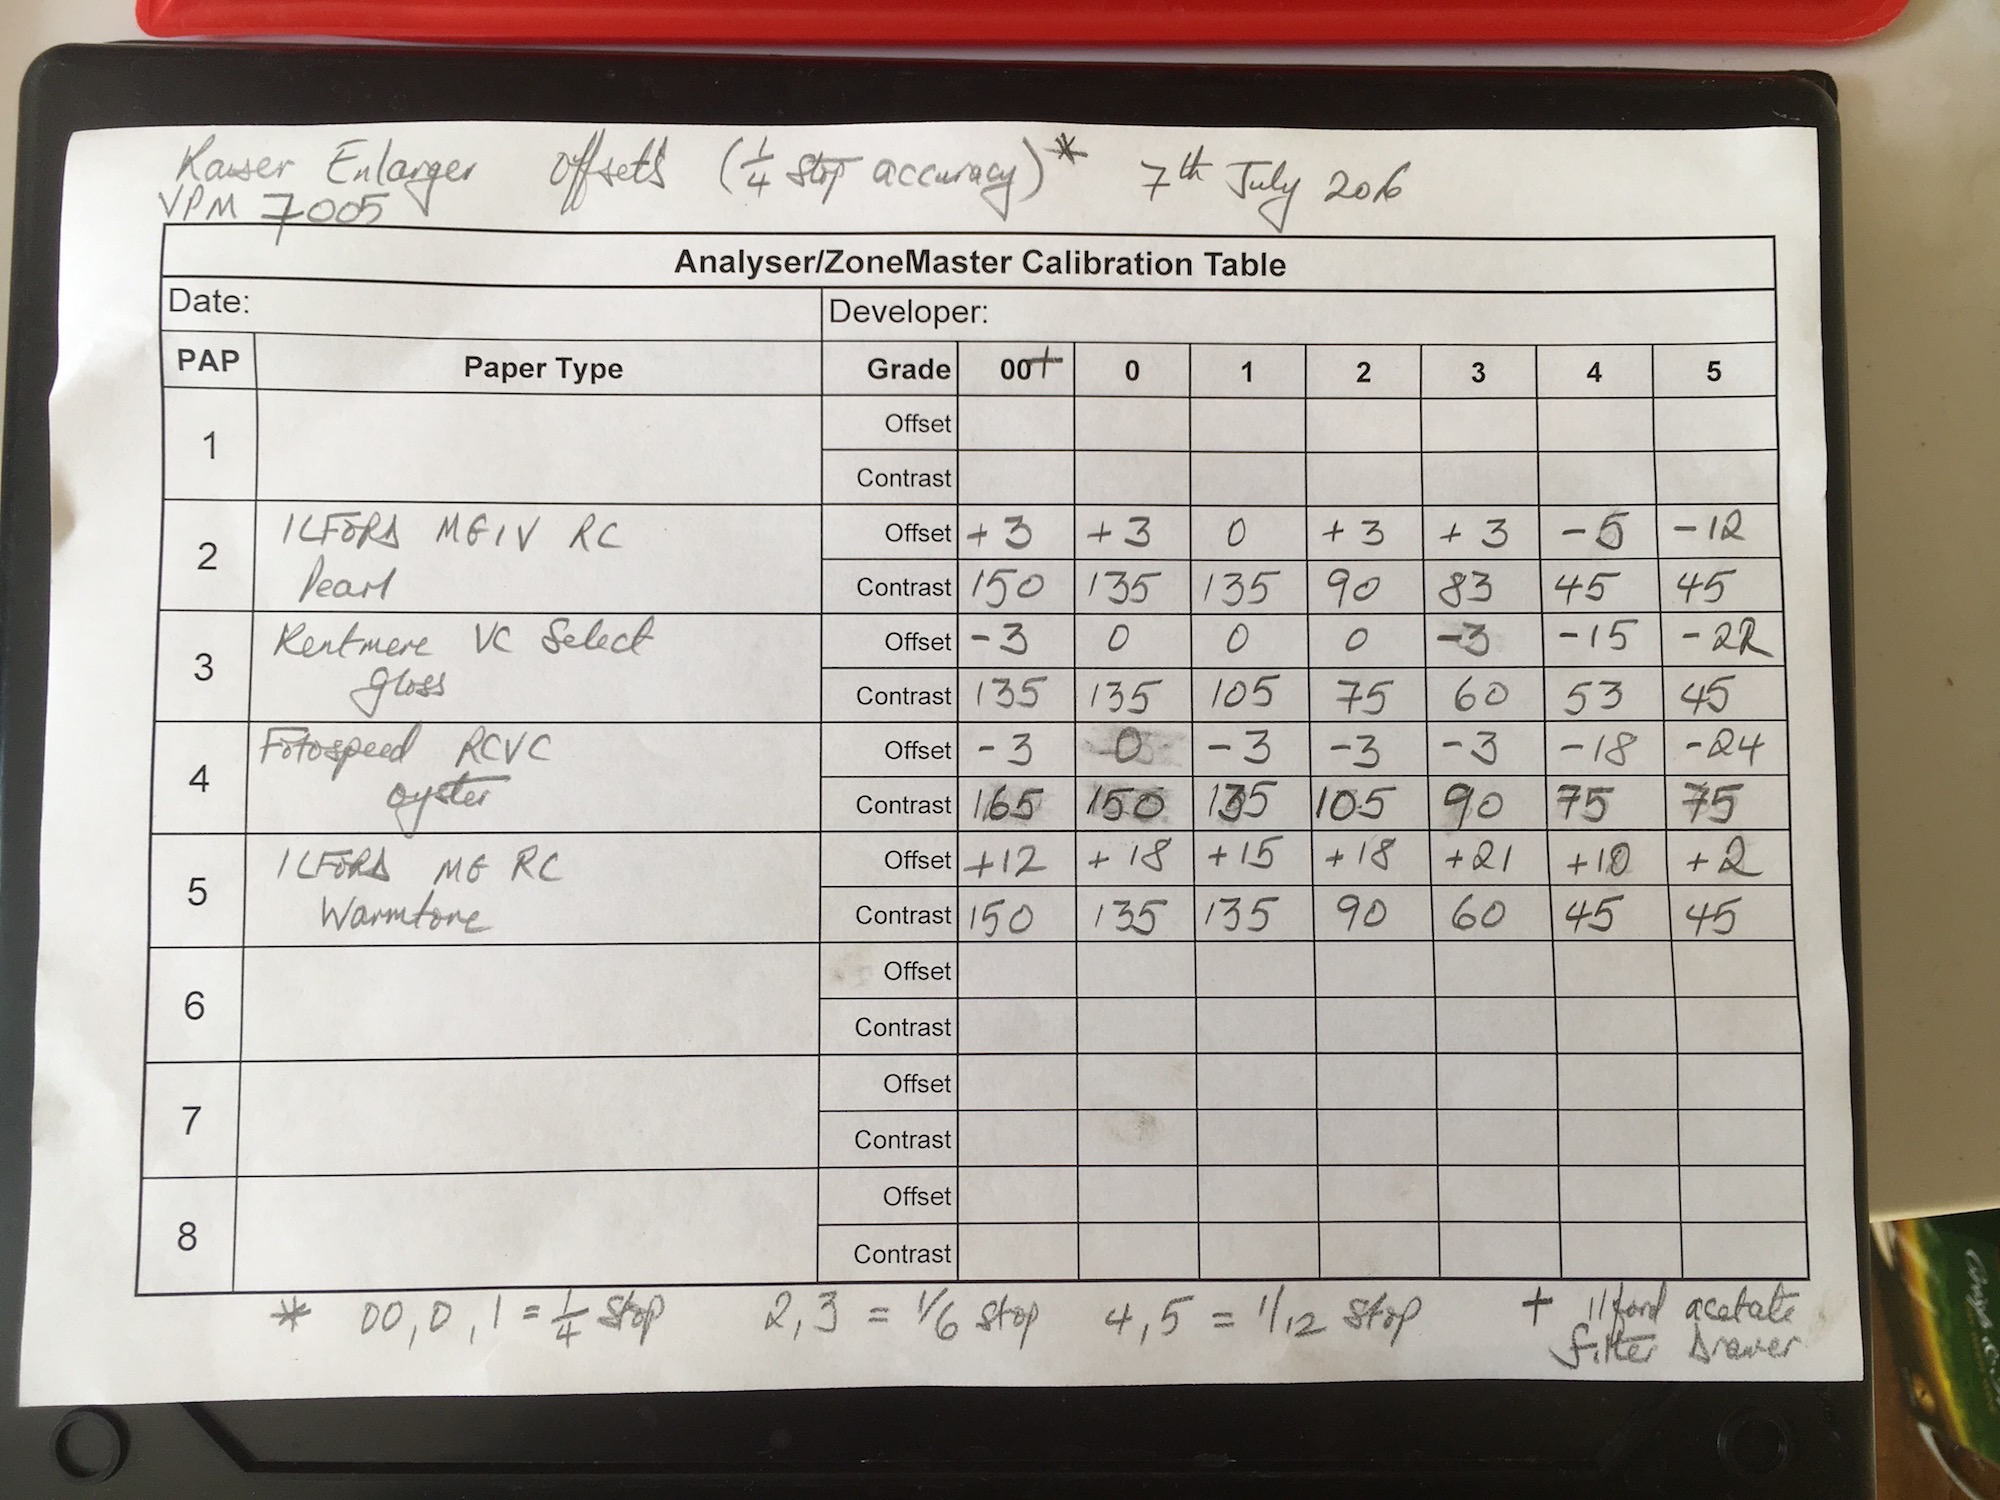 Kaiser Enlarger Offsets (1/4 stop accuracy)* 7th July 2016
VPM 7005
Analyser/ZoneMaster Calibration Table
Date: Developer:
PAP Paper Type Grade 00+ 0 1 2 3 4 5
1 Offset
Contrast
2 ILFORD MGIV RC Offset +3 +3 0 +3 +3 -5 -12
Pearl Contrast 150 135 135 90 83 45 45
3 Kentmere VC Select Offset -3 0 0 0 -3 -15 -22
gloss Contrast 135 135 105 75 60 53 45
4 Fotospeed RCVC Offset -3 0 -3 -3 -3 -18 -24
oyster Contrast 165 150 135 105 90 75 75
5 ILFORD MG RC Offset +12 +18 +15 +18 +21 +10 +2
Warmtone Contrast 150 135 135 90 60 45 45
6 Offset
Contrast
7 Offset
Contrast
8 Offset
Contrast
* 00, 0, 1 = 1/4 stop 2, 3 = 1/6 stop 4, 5 = 1/12 stop + Ilford acetate
filter Drawer